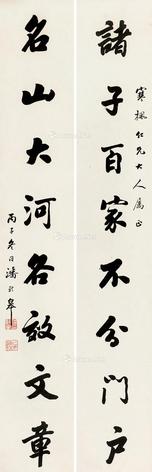 諸子百家不分門戶
寒楓仁兄大人屬正
名山大河各效文章
丙子冬日潘齡皋